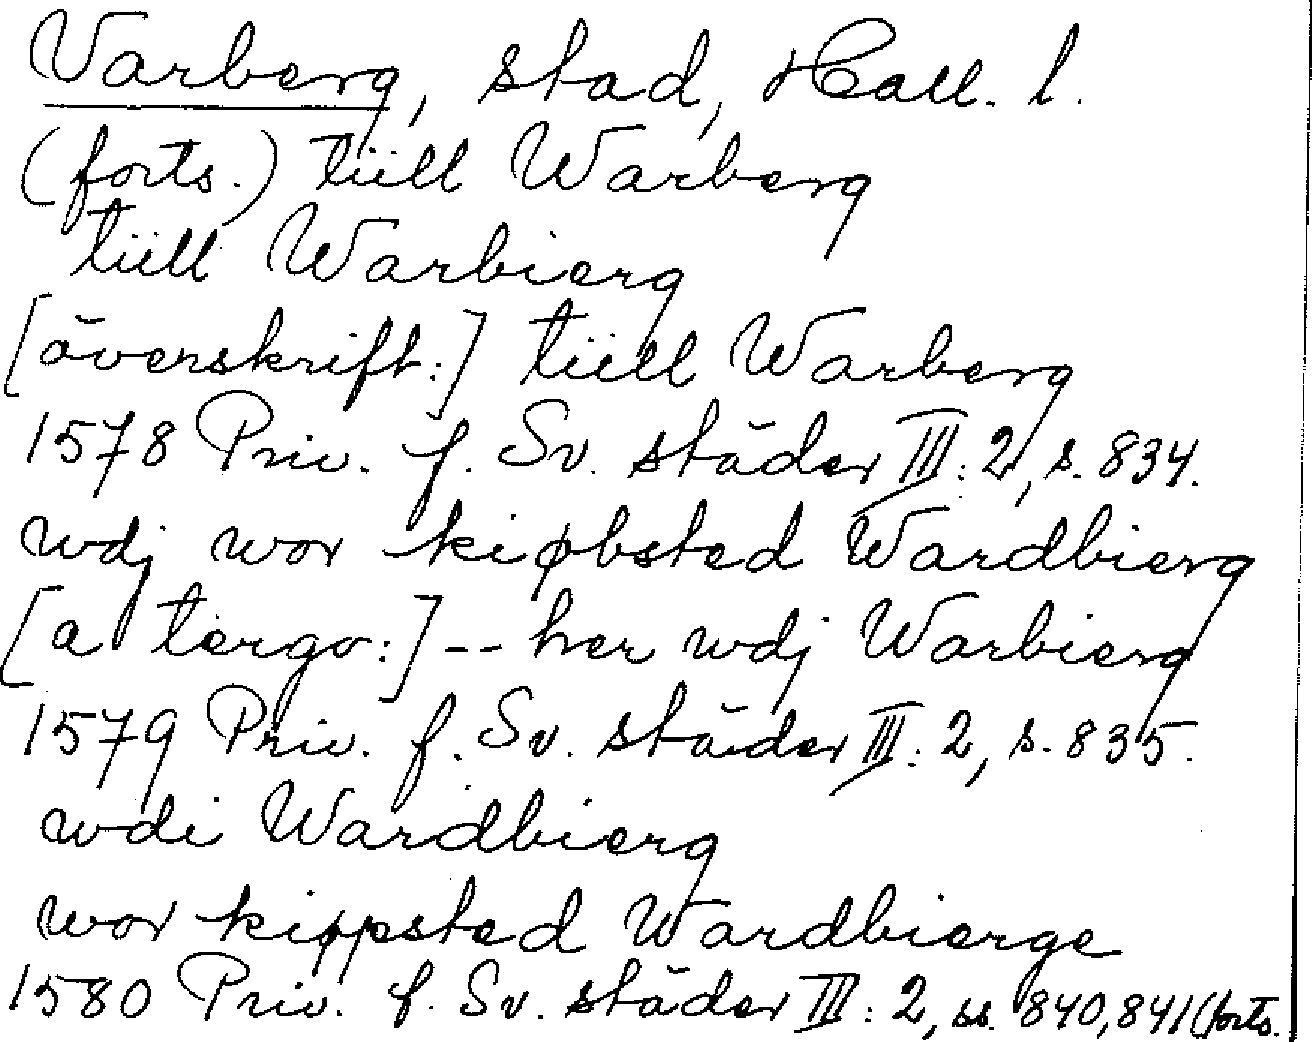 Varberg, stad, Hall. l.
(forts.) tiill Warberg
tiill Warbierg
[överskrift:] tiill Warberg
1578 Priv. f. Sv. städer III: 2, s. 834.
wdj wor kiøbsted Wardbierg
[a tergo:] -- her wdj Warbierg
1579 Priv. f. Sv. städer III: 2, s. 835.
wdi Wardbierg
wor kiøpsted Wardbierge
1580 Priv. f. Sv. städer III: 2, ss. 840, 841 (forts.